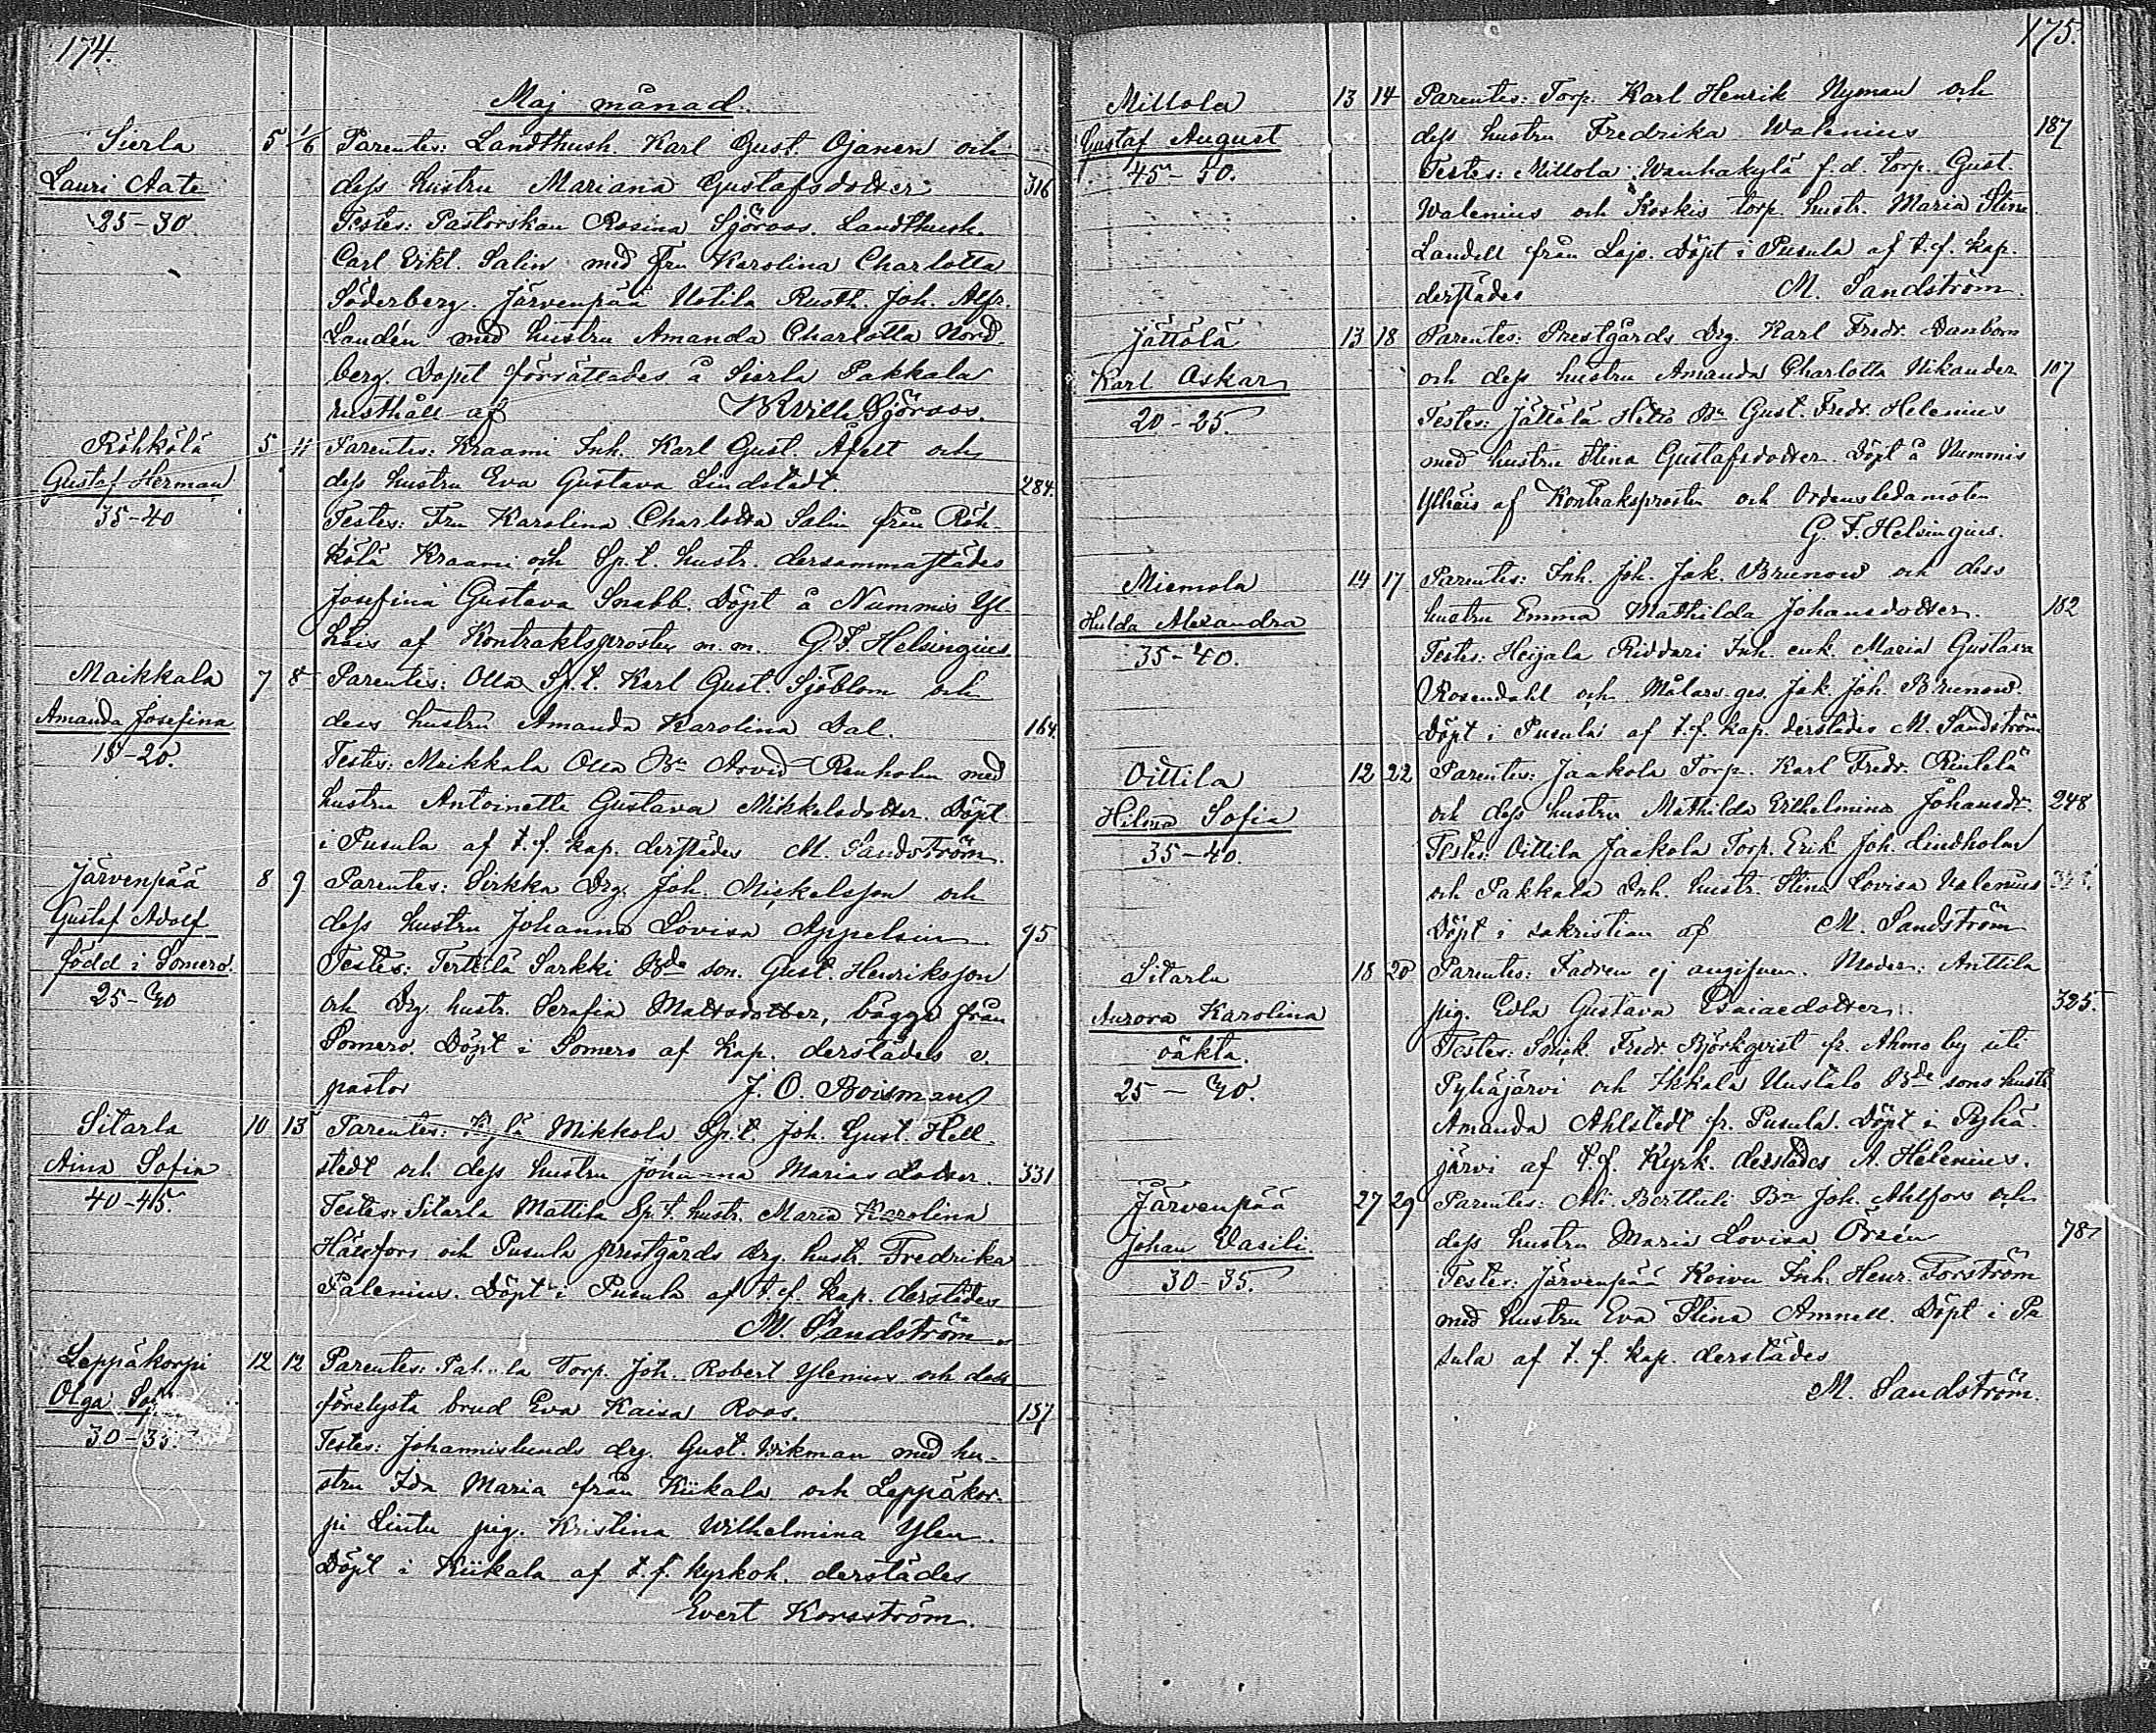 174.
Maj månad.
Sierla 5 1/6 Parentes: Landthush. Karl Gust. Ojanen och
Lauri Aate dess hustru Mariana Gustafsdotter 316
25-30 Testes: Pastorskan Rosina Sjöroos. Landthush.
Carl Vikt. Salin med fru Karolina Charlotta
Söderberg. Järvenpää Uotila Rusth. Joh. Alfr.
Landén med hustru Amanda Charlotta Nord-
berg. Dopet förrättades å Sierla Pakkala
rusthåll af Sjöroos.
Röhkölä 5 11 Parentes: Kraami Inh. Karl Gust. Åfelt och
Gustaf Herman dess hustru Eva Gustava Lindstedt. 284.
35-40 Testes: Fru Karolina Charlotta Salin från Röh-
kölä Kraami och Sp.t. hustr. dersammastädes
Josefina Gustava Snabb. Döpt å Nummis Yl-
häis af Kontraktsprosten m.m. G. F. Helsingius.
Maikkala 7 8 Parentes: Olla Sp.t. Karl Gust. Sjöblom och
Amanda Josefina dess hustru Amanda Karolina Dal. 164.
15-20. Testes: Maikkala Olla Bn Arvid Renholm med
hustru Antoinette Gustava Mikkelsdotter. Döpt
i Pusula af t.f. kap. derstädes M. Sandström.
Järvenpää 8 9 Parentes: Sirkka Drg. Joh. Mickelsson och
Gustaf Adolf dess hustru Johanna Lovisa Appelsin. 95
född i Somero. Testes: Terttilä Sarkki Bde son. Gust. Henriksson
25-30 och Drg. hustr. Serafia Mattsdotter, bägge från
Somero. Döpt i Somero af kap. derstädes v.
pastor J. O. Boisman
Sitarla 10 13 Parentes: Kylä Mikkola Sp.t. Joh. Gust. Hell-
Aina Sofia stedt och dess hustru Johanna Mariasdotter. 331
40-45. Testes: Sitarla Mattila Sp.t. hustr. Maria Karolina
Hällfors och Pusula prestgårds drg. hustr. Fredrika
Palenius. Döpt i Pusula af t.f. kap. derstädes
M. Sandström
Leppäkorpi 12 12 Parentes: Torp. Joh. Robert Ylenius och dess
Olga förelysta brud Eva Kaisa Roos. 157
30-35. Testes: Johannislunds drg. Gust. Wikman med hu-
stru Ida Maria från Kiikala och Leppäkor-
pi Lintu pig. Kristina Wilhelmina Ylen.
Döpt i Kiikala af t.f. kyrkoh. derstädes
Evert Korsström.
175.
Millola 13 14 Parentes: Torp. Karl Henrik Nyman och
Gustaf August dess hustru Fredrika Walenius 187
45-50. Testes: Millola Wanhakylä f.d. torp. Gust.
Walenius och Koskis torp. hustr. Maria Stina
Landell från Lojo. Döpt i Pusula af t.f. kap.
derstädes M. Sandström.
Jättölä 13 18 Parentes: Prestgårds Drg. Karl Fredr. Danbom
Karl Oskar och dess hustru Amanda Charlotta Nikander 107
20-25. Testes: Jättölä Bn Gust. Fredr. Helenius
med hustru Stina Gustafsdotter. Döpt å Nummis
Ylhäis af Kontraksprosten och Ordensledamoten
G. F. Helsingius.
Miemola 14 17 Parentes: Inh. Joh. Jak. Brunow och dess
Hulda Alexandra hustru Emma Mathilda Johansdotter. 182
35-40. Testes: Heijala Riddari Inh. enk. Maria Gustava
Rosendahl och Målare ges. Jak. Joh. Brunow.
Döpt i Pusula af t.f. kap. derstädes M. Sandström
Oittila 12 22 Parentes: Jaakola Torp. Karl Fredr. Rintelä
Hilma Sofia och dess hustru Mathilda Vilhelmina Johansdr 248
35-40. Testes: Oittila Jaakola Torp. Erik Joh. Lindholm
och Pakkala Inh. hustr. Stina Lovisa Valenius
Döpt i sakristian af M. Sandström
Sitarla 18 20 Parentes: Fadren ej angifven. Moder: Anttila
Aurora Karolina pig. Edla Gustava Esaiaedotter. 325.
oäkta. Testes: Fredr. Björkqvist fr. Ahmo by uti
25-30. Pyhäjärvi och Ikkala Uustalo Bde sons hustr
Amanda Ahlstedt fr. Pusula. Döpt i Pyhä-
järvi af t.f. Kyrk. derstädes A. Helenius.
Järvenpää 27 29 Parentes: Ali Berthuli Bn Joh. Ahlfors och
Johan Vasili. dess hustru Maria Lovisa Orsén 78
30-35. Testes: Järvenpää Koivu Inh. Henr. Forström
med hustru Eva Stina Amnell. Döpt i Pu
sula af t.f. kap. derstädes
M. Sandström.